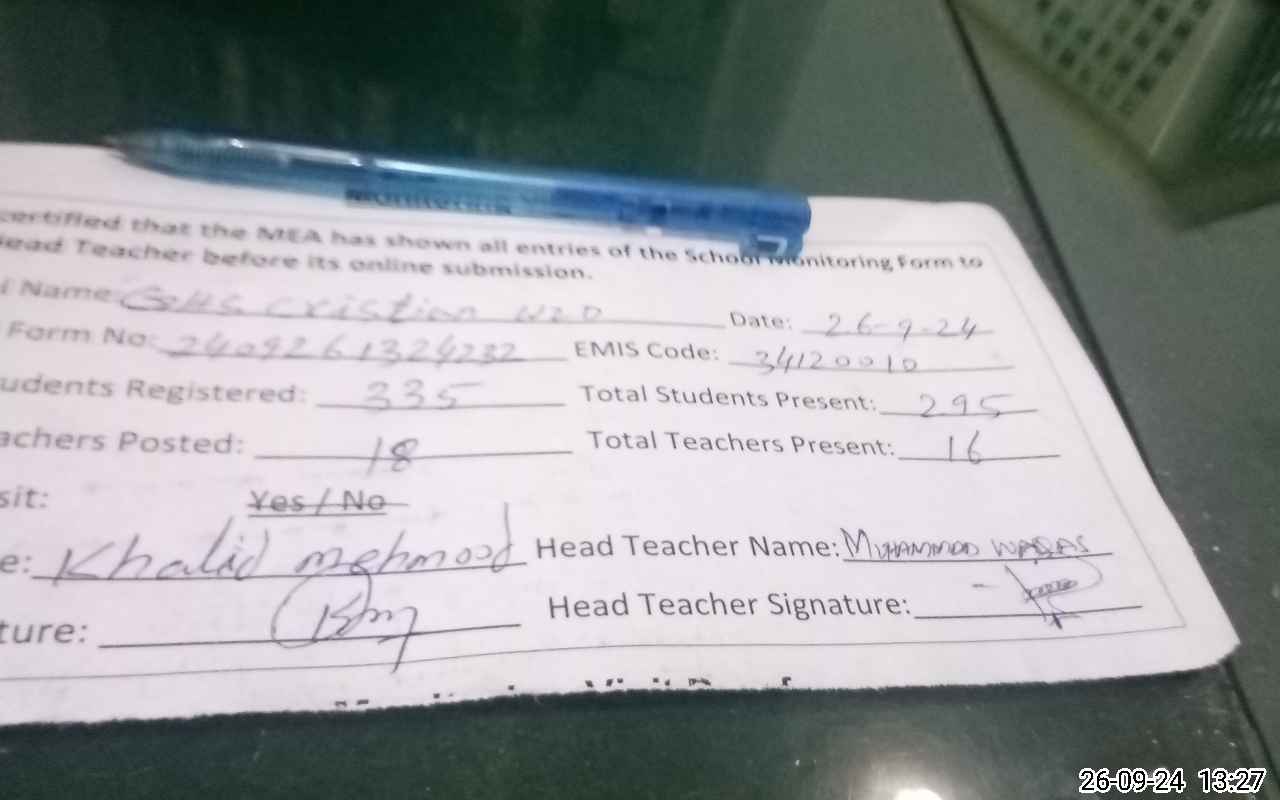 certified that the MEA has shown all entries of the School Monitoring Form to
Head Teacher before its online submission.
l Name: GGHS Cristian Date: 26-9-24
Form No: 2409261324232 EMIS Code: 34120010
udents Registered: 335 Total Students Present: 295
achers Posted: 18 Total Teachers Present: 16
sit: Yes / No
e: Khalid mehmood Head Teacher Name: MUHAMMAD WAQAS
ture: Head Teacher Signature:
26-09-24 13:27